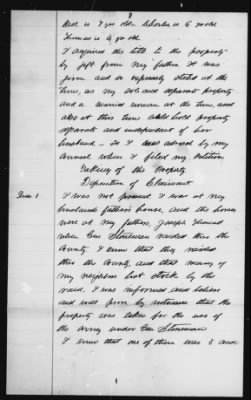 3
Bell is 7 yrs old Charles is 6 yrs old
Thomas is 4 yrs old
I acquired the title to the property
by gift from my father. It was
given and so expressly stated at the
time, as my sole and separate property
and a married woman at the time, and
also at this time could hold property
separate and independent of her
husband - So I was advised by my
Counsel when I filed my Petition
Taking of the Property
Deposition of Claimant
I was not present I was at my
husbands fathers house, and the horses
were at my fathers, Joseph
when Gen Stoneman raided thro the
County I know that they raided
thro the County, and that many of
my neighbors lost stock by the
raid. I was informed and believe
and will prove by witnesses that the
property was taken for the use of
the army under Gen Stoneman
I know that one of them was